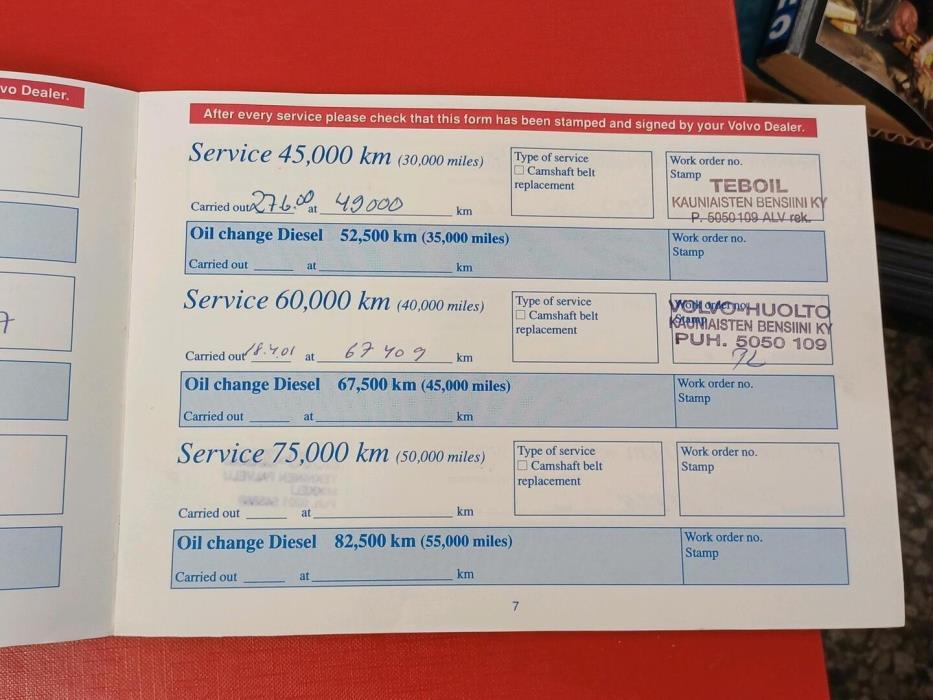 vo Dealer.
7
After every service please check that this form has been stamped and signed by your Volvo Dealer.
Service 45,000 km (30,000 miles)
Carried out 27.6.00 at 49000 km
Type of service
Camshaft belt
replacement
Work order no.
Stamp
TEBOIL
KAUNIAISTEN BENSIINI KY
P. 5050109 ALV rek.
Oil change Diesel 52,500 km (35,000 miles)
Carried out at km
Work order no.
Stamp
Service 60,000 km (40,000 miles)
Carried out 18.4.01 at 67409 km
Type of service
Camshaft belt
replacement
Work order no.
Stamp
VOLVO-HUOLTO
KAUNIAISTEN BENSIINI KY
PUH. 5050 109
Oil change Diesel 67,500 km (45,000 miles)
Carried out at km
Work order no.
Stamp
Service 75,000 km (50,000 miles)
Carried out at km
Type of service
Camshaft belt
replacement
Work order no.
Stamp
Oil change Diesel 82,500 km (55,000 miles)
Carried out at km
Work order no.
Stamp
7